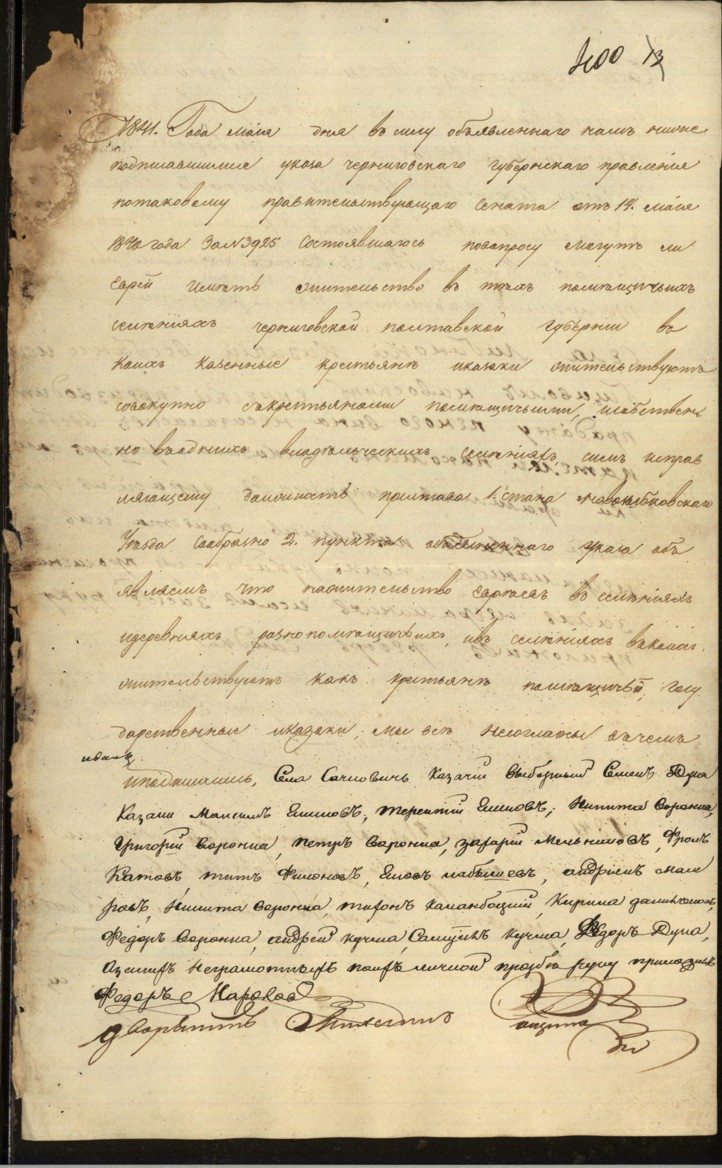 400 13
1841. Года Мая дня в силу объявленнаго намъ ниже
подписавшимся указа черниговскаго Губернскаго правления
потаковому правительствующаго Сената отъ 14. Мая
1840 года За № 3925 состоявшагось повопросу могутъ ли
Евреи иметь жительство в техъ помещичьихъ
селенияхъ черниговской полтавской Губернии в
коихъ казенные крестьяне иказаки жительствуютъ
совокупно скрестьянами помещичьими исобствен
но водныхъ владельческихъ селенияхъ симъ исправ
ляющему должность пристава 1. стана Новозыбковскаго
Уезда Сообразно 2. пункта указа объ
являемъ что нажительство Евреевъ в селенияхъ
идеревняхъ разнопомещичьихъ, ивъ селенияхъ вкоихъ
жительствуютъ какъ крестьяне помещичьи, Госу
дарственные иказаки, мы все несогласны вчемъ
иподпишись, Села Сачковичь казачий выборный Семенъ Дуна
Казаки Максимъ Ешиовъ, терентий Ешиовъ, Никита Воронна,
Григорий Воронна, петръ Воронна, захарий мельниковъ, Фролъ
Катовъ титъ Филоновъ, андреи
ровъ, Никита Воронна, Кирила
Федоръ Воронна, андрей кучма, Самуилъ кучма, Федоръ Дуна,
Азанихъ неграмотныхъ поихъ личной прозбе руку приложилъ
Федоръ Марков
дворянинъ